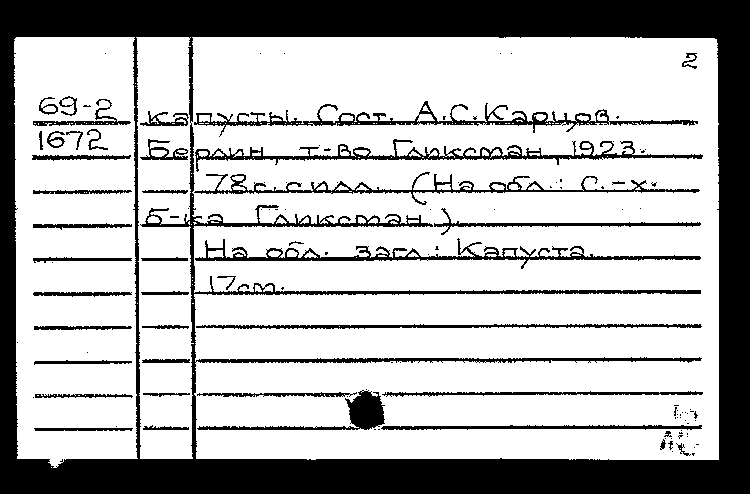 2
69-2 капусты. Сост. А.С.Карцов.
1672 Берлин, т-во Гликсман, 1923.
78с. с илл. (На обл.: С.-х.
б-ка Гликсман).
На обл. загл.: Капуста.
17см.